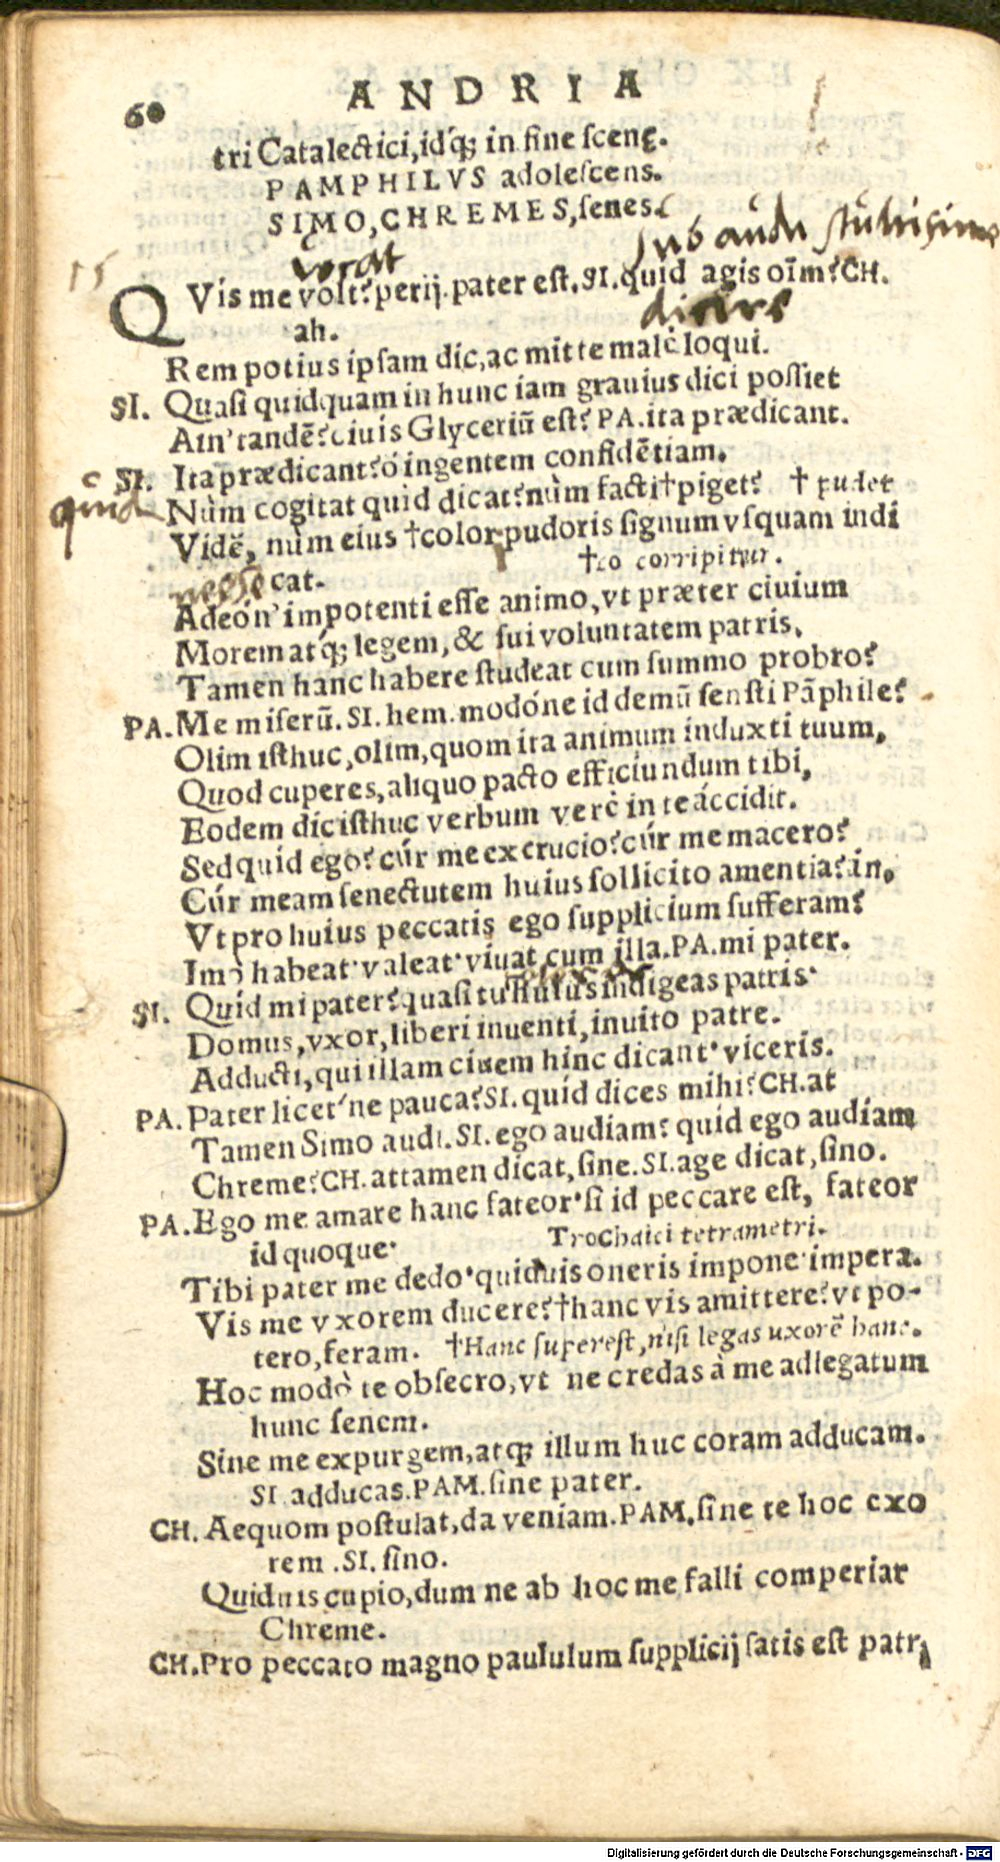 60 ANDRIA
tri Catalectici, idq́; in fine scenę.
PAMPHILVS adolescens.
SIMO, CHREMES, senes.
sub audi stultissime
vocat
15
QVis me volt? perij. pater est. SI. quid agis oīm? CH.
ah.
dicere
Rem potius ipsam dic, ac mitte malè loqui.
SI. Quasi quidquam in hunc iam grauius dici possiet
Ain' tandē? ciuis Glyceriū est? PA. ita prædicant.
SI. Ita prædicant? ó ingentem confidētiam.
quid
Nùm cogitat quid dicat? nùm facti †piget? † pudet
Vidē, nùm eius †color pudoris signum vsquam indi
†co corripitur.
cat.
Adeón' impotenti esse animo, vt præter ciuium
Morem atq́; legem, & sui voluntatem patris,
Tamen hanc habere studeat cum summo probro?
PA. Me miserū. SI. hem. modóne id demū sensti Pāphile?
Olim isthuc, olim, quom ita animum induxti tuum,
Quod cuperes, aliquo pacto efficiundum tibi,
Eodem dic isthuc verbum verè in te áccidit.
Sed quid ego? cúr me excrucio? cúr me macero?
Cúr meam senectutem huius sollicito amentia? an,
Vt pro huius peccatis ego supplicium sufferam?
Imò habeat· valeat· viuat cum illa. PA. mi pater.
SI. Quid mi pater? quasi tu huius indigeas patris·
Domus, vxor, liberi inuenti, inuito patre.
Adducti, qui illam ciuem hinc dicant· viceris.
PA. Pater licet'ne pauca? SI. quid dices mihi? CH. at
Tamen Simo audi. SI. ego audiam? quid ego audiam
Chreme? CH. attamen dicat, sine. SI. age dicat, sino.
PA. Ego me amare hanc fateor· si id peccare est, fateor
id quoque·
Trochaici tetrametri.
Tibi pater me dedo· quiduis oneris impone· impera.
Vis me vxorem ducere? †hanc vis amittere? vt po-
tero, feram. †Hanc superest, nisi legas uxorē hanc.
Hoc modò te obsecro, vt ne credas à me adlegatum
hunc senem.
Sine me expurgem, atq; illum huc coram adducam.
SI. adducas. PAM. sine pater.
CH. Aequom postulat, da veniam. PAM. sine te hoc exo
rem. SI. sino.
Quiduis cupio, dum ne ab hoc me falli comperiar
Chreme.
CH. Pro peccato magno paululum supplicij satis est patri
Digitalisierung gefördert durch die Deutsche Forschungsgemeinschaft - DFG